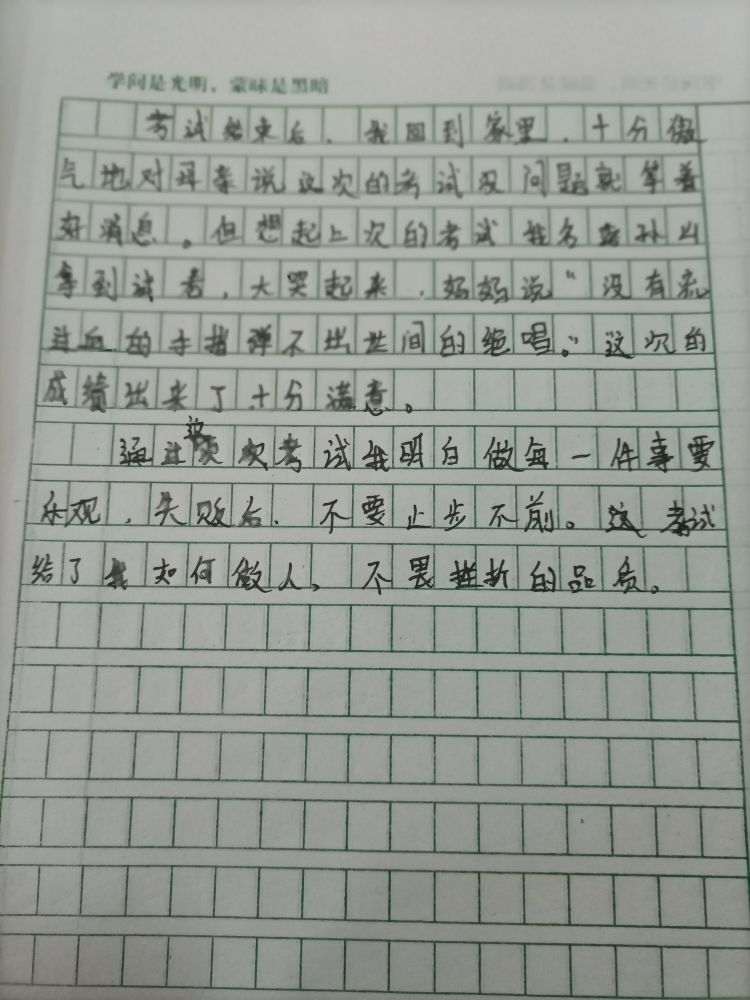 学问是光明、蒙昧是黑暗
考试结束后，我回到家里，十分傲
气地对母亲说这次的考试没问题就等着
好消息。但想起上次的考试我名落孙山
拿到试卷，大哭起来，妈妈说“没有流
过血的手指弹不出世间的绝唱。”这次的
成绩出来了十分满意。
通过这次考试我明白做每一件事要
乐观，失败后，不要止步不前。这考试
给了我如何做人、不畏挫折的品质。